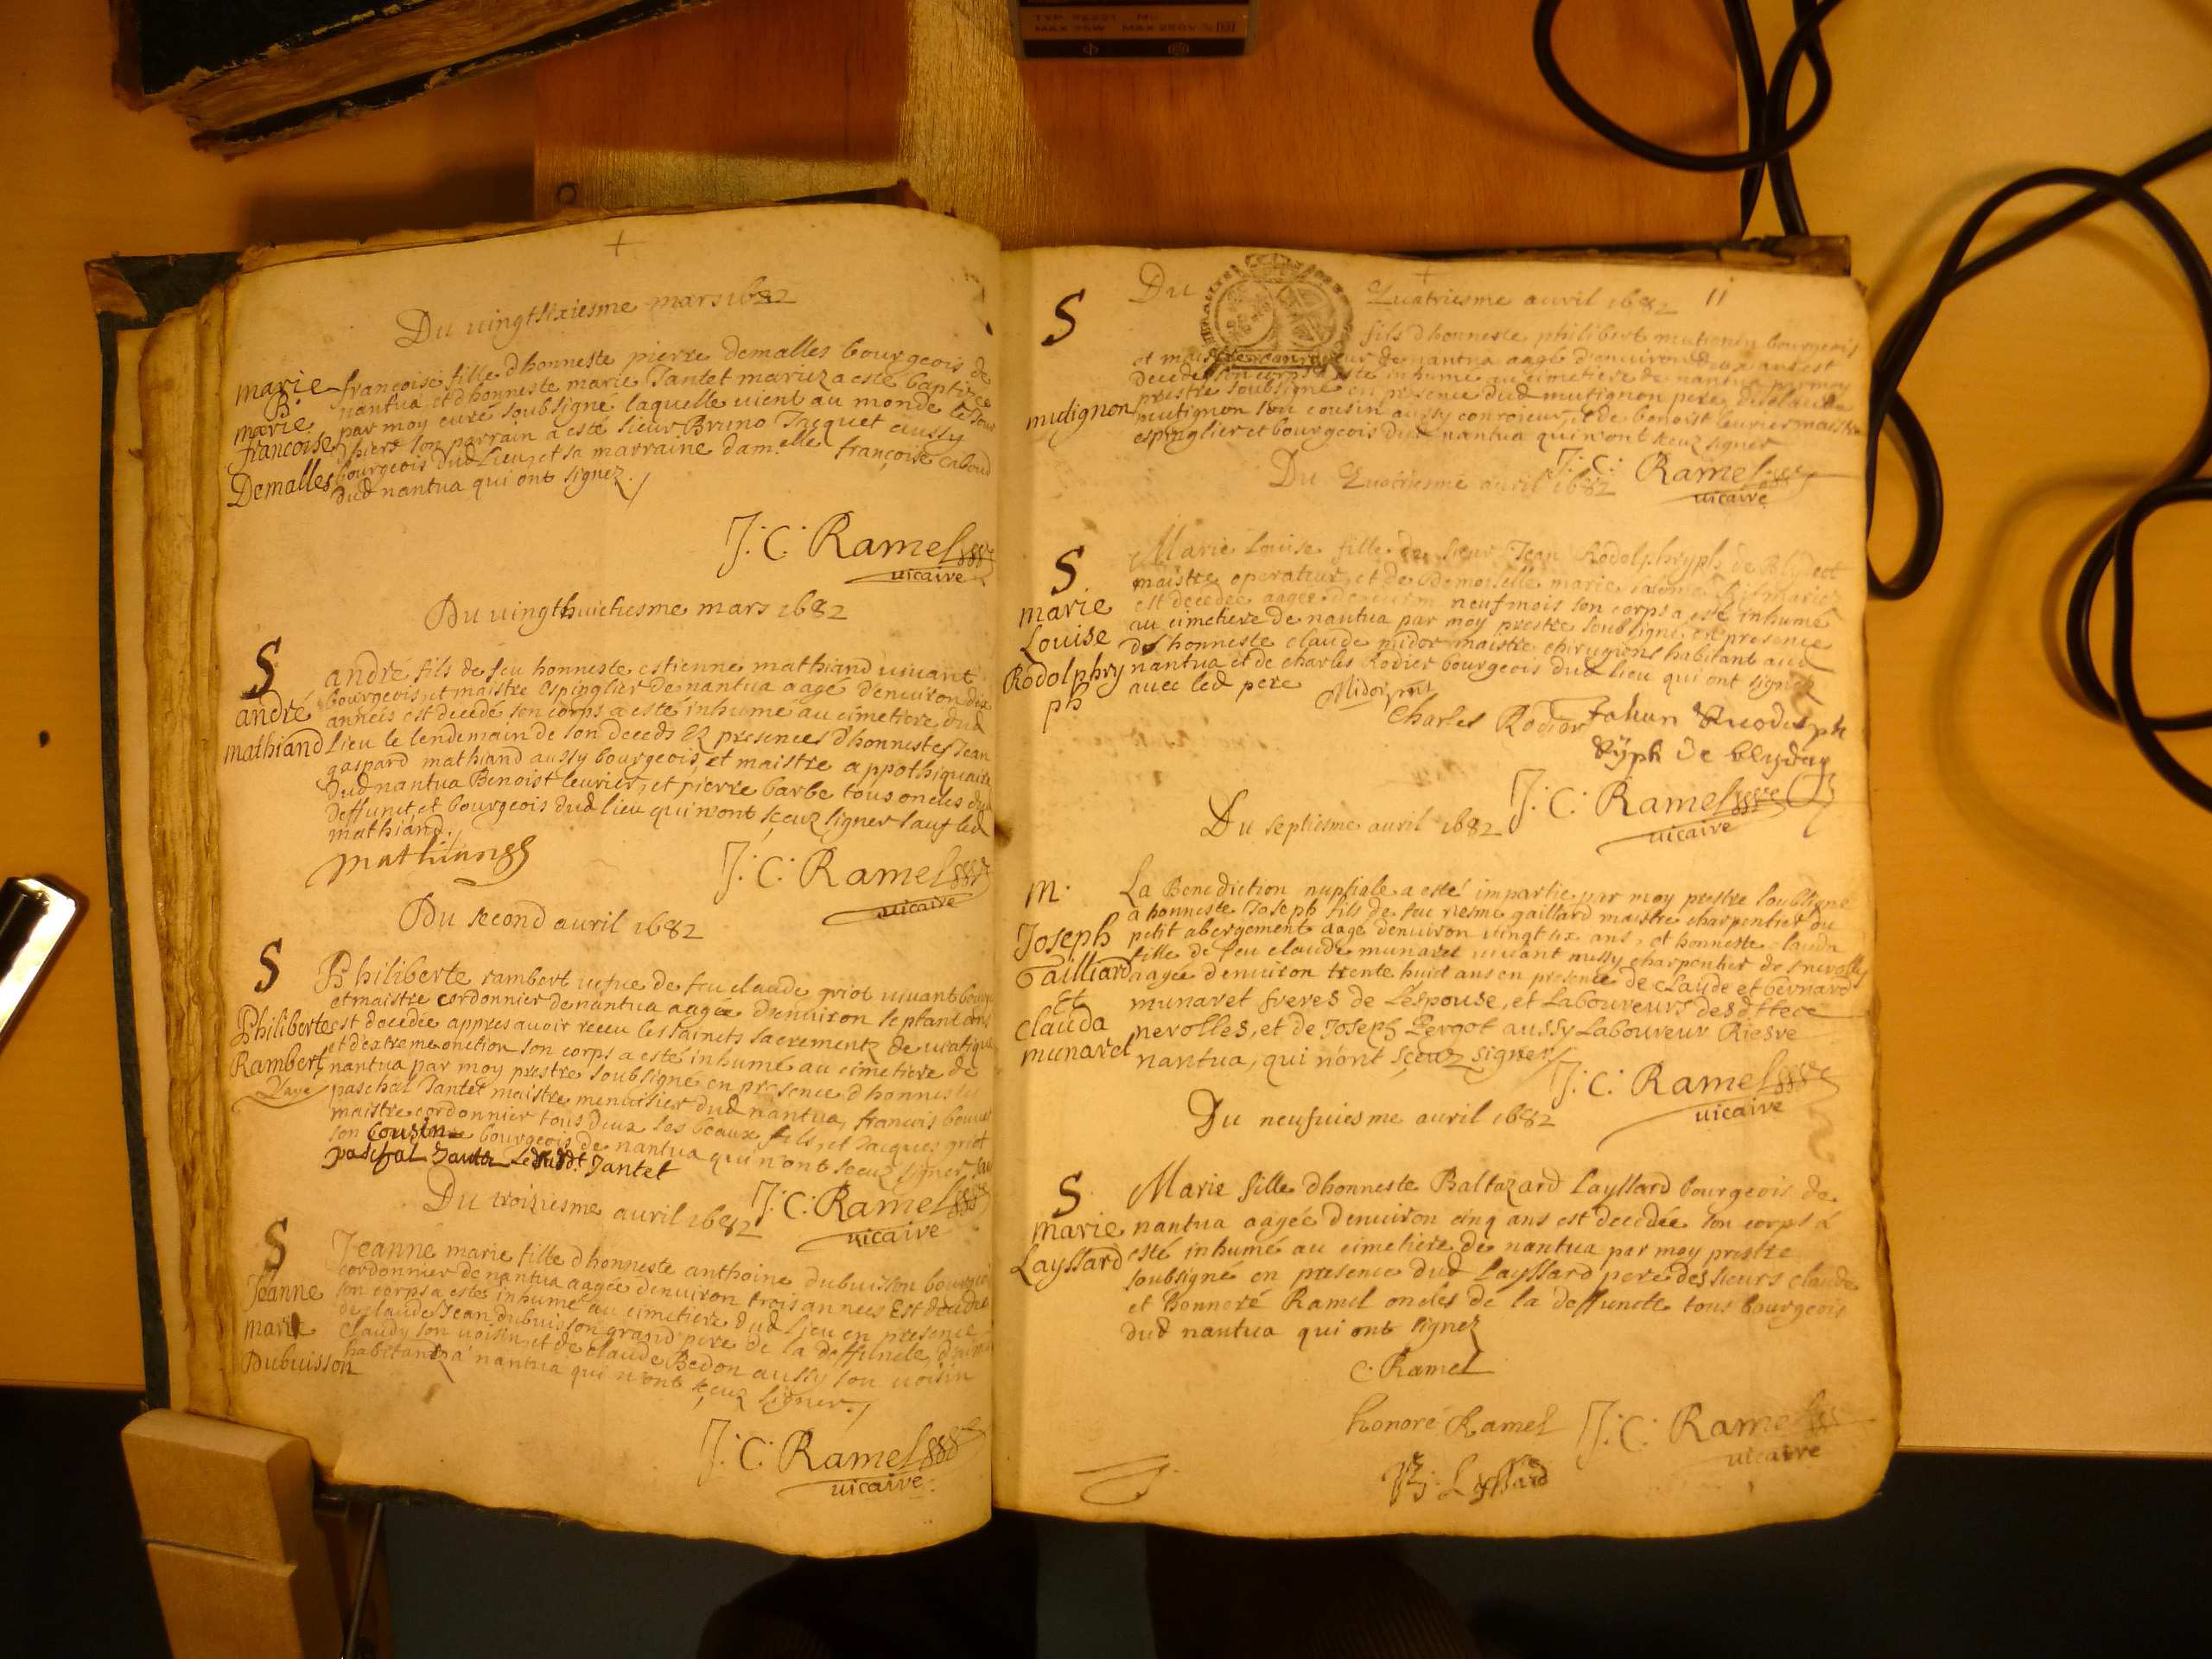 TYP
MAX 75W MAX 250V
Du vingtsixiesme mars 1682
marie
B.
marie
francoise
Demalles
francoise fille dhonneste pierre demalles bourgeois de
nantua, et dhonneste marie Jantet mariez a esté baptizée
par moy curé soubsigné laquelle vient au monde le jour
dhiert son parrain a esté sieur Bruno Jacquet aussy
bourgeois dud Lieu, et sa marraine dam.elle françoise caboud
dud nantua qui ont signez./
J: C: Ramel
vicaire
Du vingthuictiesme mars 1682
S
andré
mathiand
andré fils de feu honneste estienne mathiand vivant
bourgeois, et maistre espinglier de nantua aagé d'environ dix
annéés est decedé son corps a esté inhumé au cimetiere dud
Lieu le lendemain de son deceds Ez presences d'honnestes Jean
gaspard mathiand aussy bourgeois, et maistre appothiquaire
dud nantua Benoist leurier, et pierre barbe tous oncles dud
deffunct, et bourgeois dud lieu qui n'ont sceuz signer sauf led
mathiand.
mathiand
J: C: Ramel
vicaire
Du second avril 1682
S
Philiberte
Rambert
Philiberte rambert vefve de feu claude griot vivant bourg
et maistre cordonnier de nantua aagée d'environ septant ans
est decedée appres avoir receu les saincts sacrementz de viatique
et dextreme onction son corps a esté inhumé au cimetiere de
nantua par moy prestre soubsigné en presence d'honnestes
paschal Jantet maistre menuisier dud nantua, francois bouvet
maistre cordonnier tous deux ses beaux fils, et Jacques griot
son cousin bourgeois de nantua qui n'ont sceuz signer
Jantet
J: C: Ramel
vicaire
Du troiziesme avril 1682
S
Jeanne
marie
Dubuisson
Jeanne marie fille dhonneste anthoine dubuisson bourgeoi
cordonnier de nantua aagée denviron trois années Est decedée
son corps a estés inhumé au cimetiere dud Lieu en presence
de claude Jean dubuisson grand pere de la deffuncte,
claudy son voisin, et de claude Bedon aussy son voisin
habitant a nantua qui n'ont sceuz signer./
J: C: Ramel
vicaire
Du Quatriesme avril 1682 11
S
mutignon
fils dhonneste philibert mutignon bourgeois
et maistre conroieur de nantua aagé d'environ deux ans est
decedé son corps a esté inhumé au cimetiere de nantua par moy
prestre soubsigné en presence dud mutignon pere, de claude
mutignon son cousin aussy conroieur, et de benoist leurier maistre
espinglier et bourgeois dud nantua qui n'ont sceuz signer
J: C: Ramel
vicaire
Du Quatriesme avril 1682
S
marie
Louise
Rodolphry
ph
Marie Louise fille de sieur Jean Rodolphryph de
maistre operateur, et de Demoiselle marie
est decedée aagée denviron neuf mois son corps a esté inhumé
au cimetiere de nantua par moy prestre soubsigné en presence
de honneste claude midor maistre chirugient habitant aud
nantua et de charles Rodier bourgeois dud lieu qui ont signez
avec led pere
Midor
Charles Rodior
J: C: Ramel
vicaire
Du septiesme avril 1682
m.
Joseph
Gailliard
Et
clauda
munaret
La Benediction nuptiale a esté impartie par moy prestre soubsigné
a honneste Joseph fils de feu gaillard maistre charpentier du
petit abergement aagé denviron vingt six ans, et honneste clauda
fille de feu claude munaret vivant aussy charpentier de
aagée d'environ trente huict ans en presence de claude et bernard
munaret freres de Lespouse, et Laboureurs desd
nerolles, et de Joseph Pergot aussy Laboureur Riesre
nantua, qui n'ont sceuz signer/
J: C: Ramel
vicaire
Du neufviesme avril 1682
S
marie
Layssard
Marie fille dhonneste Baltazard Layssard bourgeois de
nantua aagée denviron cinq ans est decedée son corps á
esté inhumé au cimetiere de nantua par moy prestre
soubsigné en presence dud Layssard pere des sieurs claude
et honnoré Ramel oncles de la deffuncte tous bourgeois
dud nantua qui ont signez
C. Ramel
honoré Ramel
J: C: Ramel
vicaire